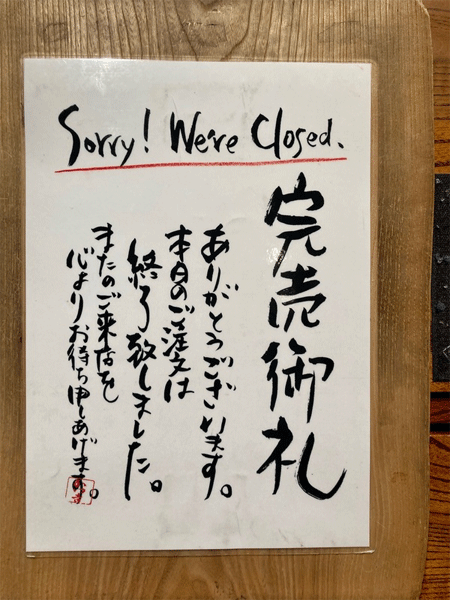 Sorry! We're Closed.
完売御礼
ありがとうございます。
本日のご注文は
終了致しました。
またのご来店を
心よりお待ち申しあげます。